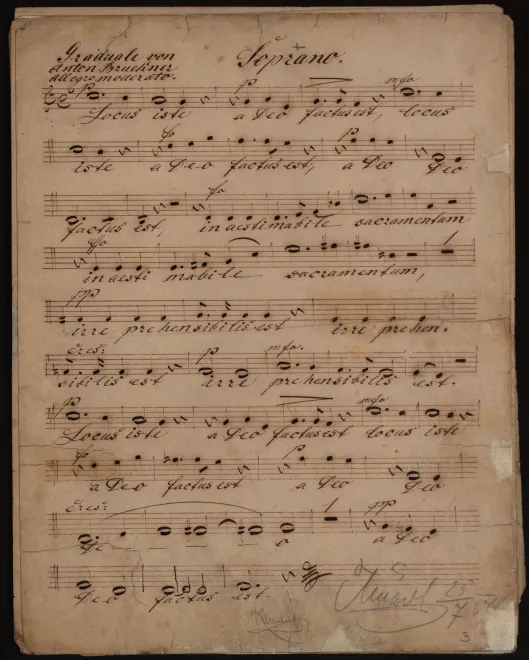 Graduale von
Anton Bruckner
Allegro moderato.
Soprano.
p p mfo
Locus iste a Deo factus est, locus
fo p
iste a Deo factus est, a Deo Deo
fo
factus est, inaestimabile sacramentum
ffo 1
inaesti mabile sacramentum,
pp
irre prehensibilis est irre prehen.
cres: p mfo.
sibilis est irre prehensibilis est.
p mfo
Locus iste a Deo factus est locus iste
fo p
a Deo factus est a Deo Deo
cres: 1 pp
De o a Deo
Deo factus est.
25
7
3